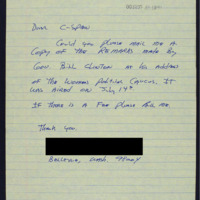 Dear C-SPAN
Could you please mail me a
copy of the remarks made by
Gov. Bill Clinton at his address
of the Womens Political Caucus. It
was aired on July 14th
If there is a fee please bill me.
Thank you.